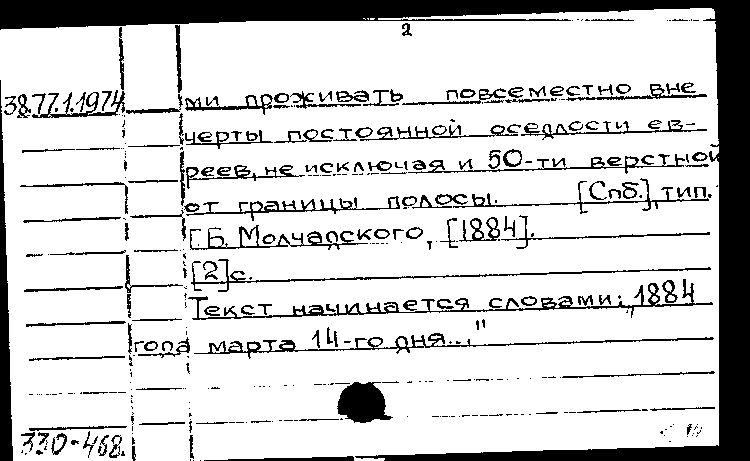 2
38.77.1.1974 ми проживать повсеместно вне
черты постоянной оседлости ев-
реев, не исключая и 50-ти верстной
от границы полосы. [Спб.], тип.
Г.Б. Молчадского, [1884].
[2]с.
Текст начинается словами: „1884
года марта 14-го дня..."
330-468.